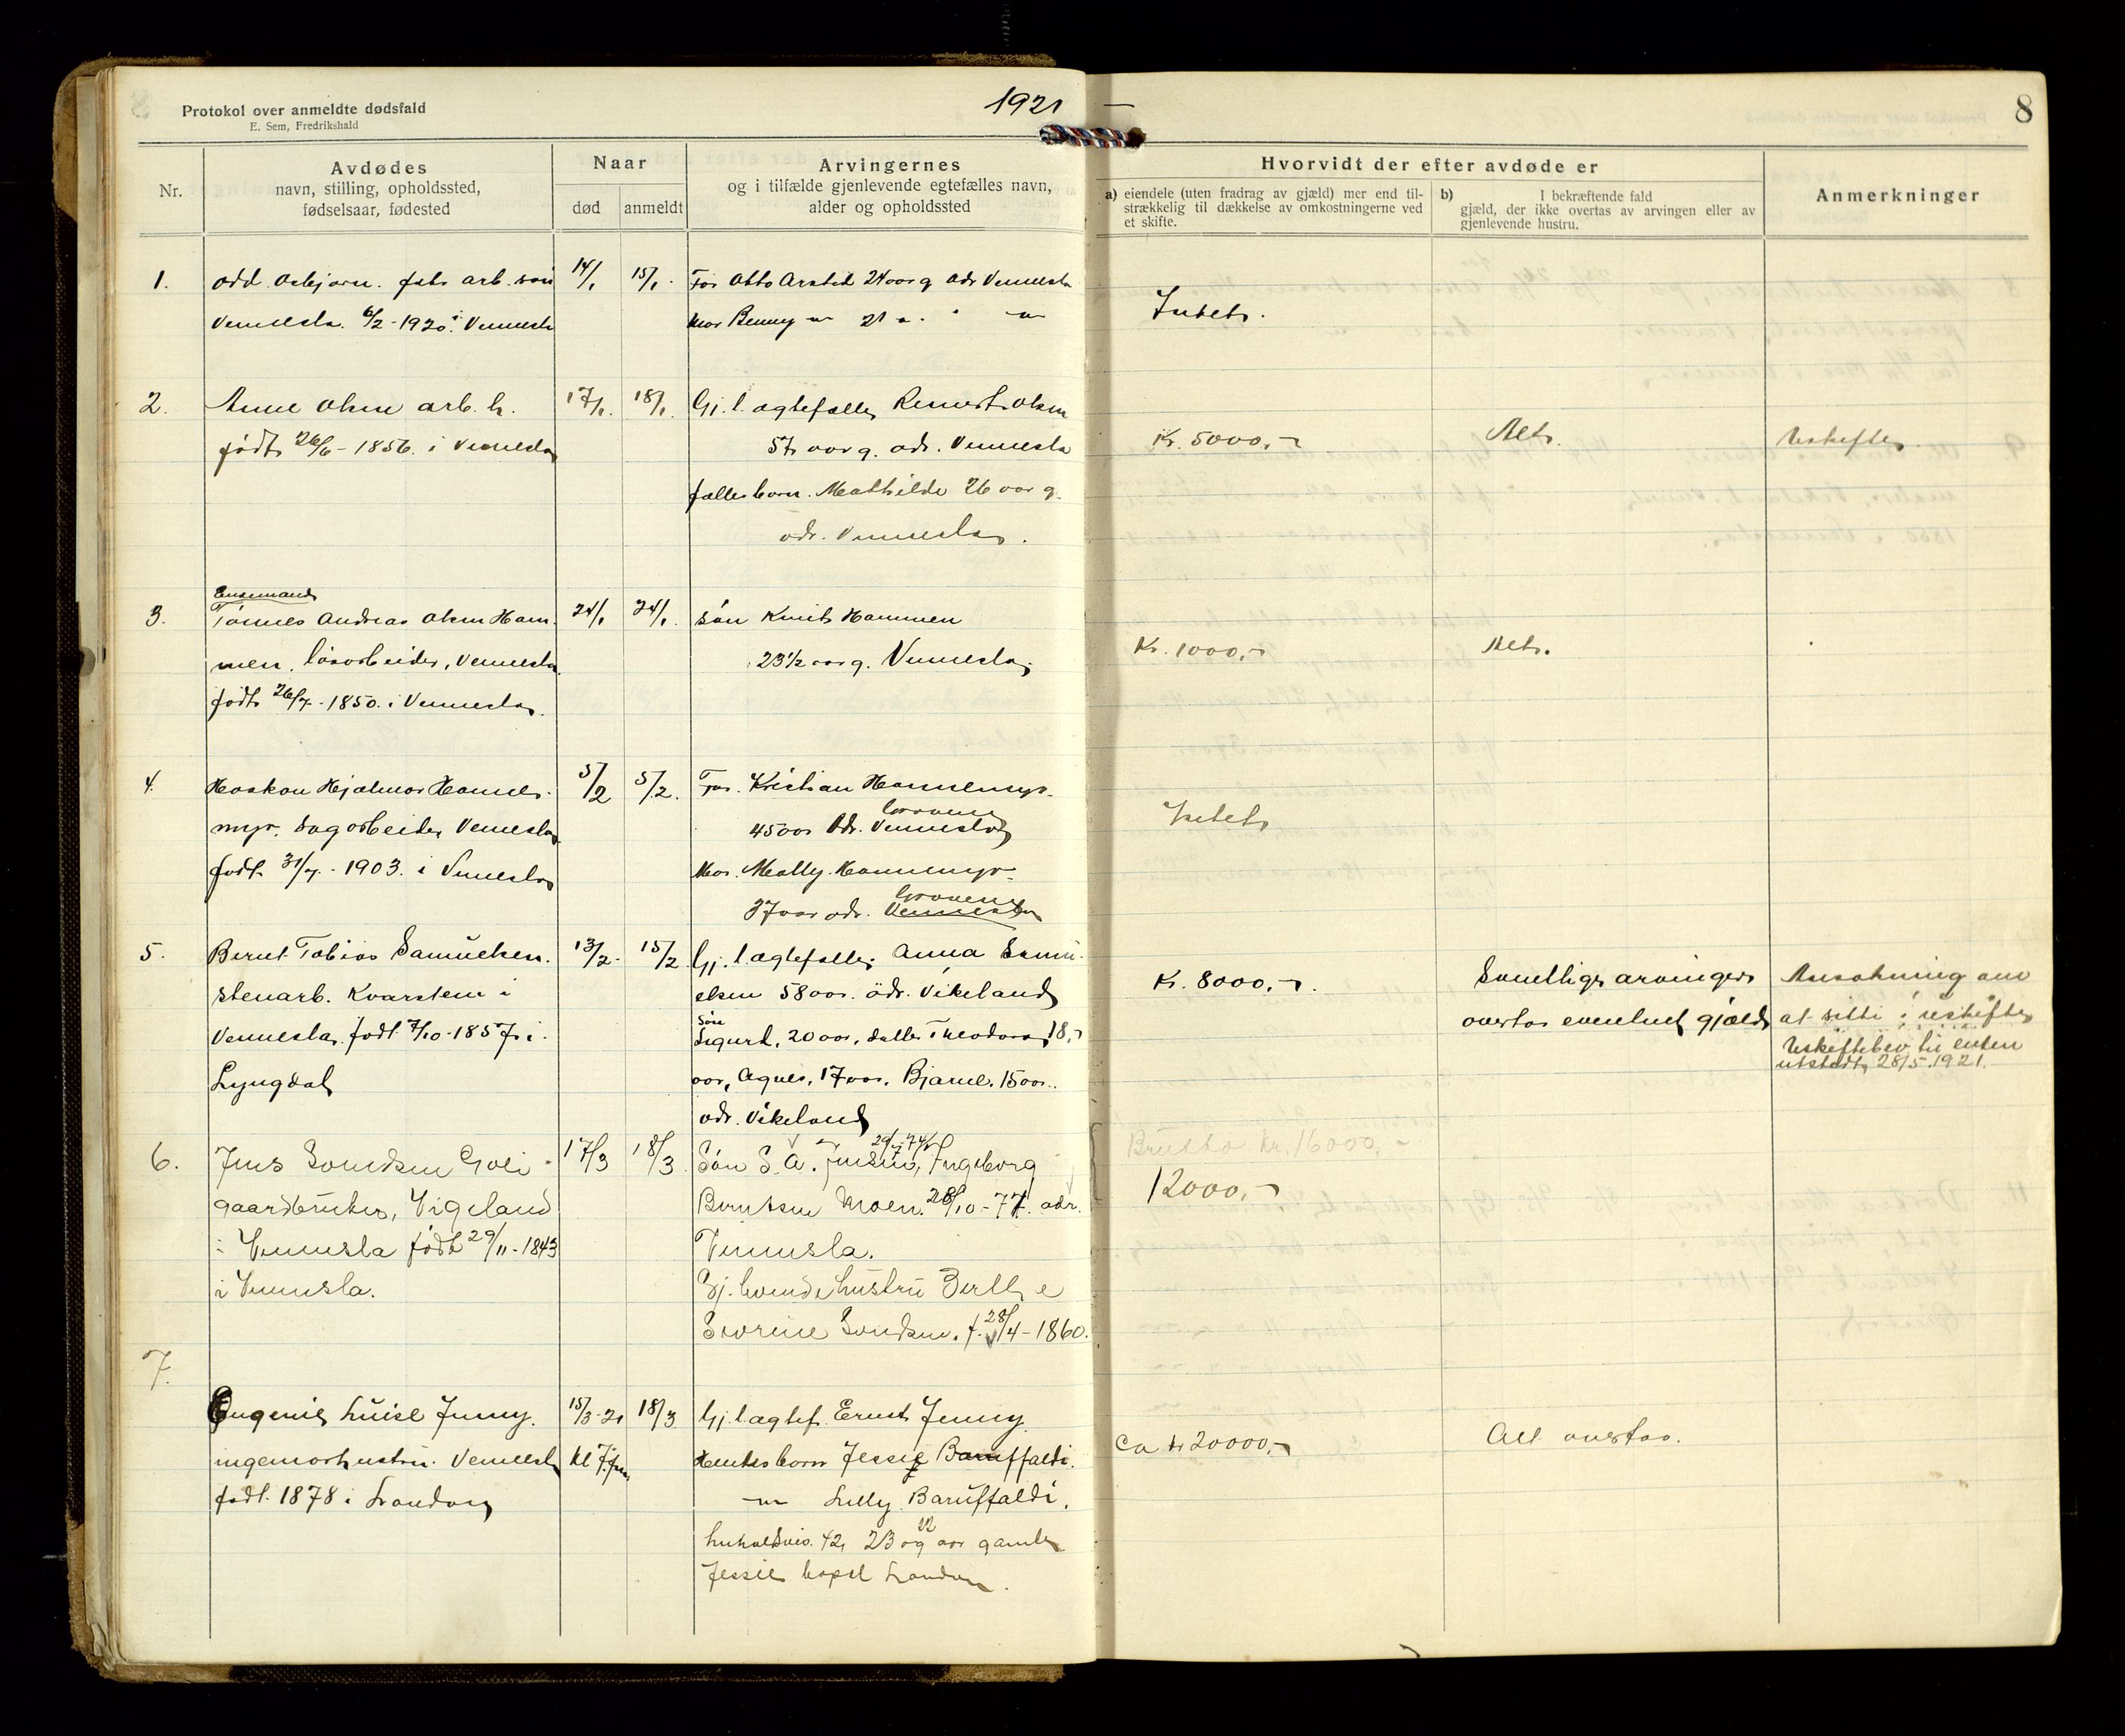 Protokol over anmeldte dødsfald
E. Sem, Fredrikshald
1921 —
8
Nr.
Avdødes
navn, stilling, opholdssted,
fødselsaar, fødested
Naar
død
anmeldt
Arvingernes
og i tilfælde gjenlevende egtefælles navn,
alder og opholdssted
Hvorvidt der efter avdøde er
a) eiendele (uten fradrag av gjæld) mer end til-
strækkelig til dækkelse av omkostningerne ved
et skifte.
b) I bekræftende fald
gjæld, der ikke overtas av arvingen eller av
gjenlevende hustru.
Anmerkninger
1.
Odd Asbjørn. fabr. arb. søn
Vennesla. 6/2-1920 i Vennesla
14/1
15/1.
Far Otto 24 aar g. Adr Vennesla
Mor Benny — 21 — " —
Intet.
2.
Anne Olsen arb. h.
født 26/6 - 1856. i Vennesla
17/1.
18/1.
Gj. l. ægtefælle Olsen
57 aar g. adr. Vennesla
fællesbarn. Mathilde 26 aar g.
adr. Vennesla.
Kr. 5000,-
Alt.
Uskifte.
3.
Enkemand
Tønnes Andreas Olsen Ham-
men, løsarbeider, Vennesla
født 26/7 - 1850. i Vennesla.
24/1
24/1.
søn Knut Hammen
23 1/2 aar g. Vennesla.
Kr. 1000,-
Alt.
4.
Haakon Hjalmar Hannes-
myr. Sagarbeider Vennesla
født 31/7. - 1903. i Vennesla
5/2
5/2.
Far. Kristian Hannesmyr.
Graven
45 aar Adr. Vennesla
Mor. Mally. Hannesmyr.
Graven
37 aar adr. Vennesla
Intet
5.
Bernt Tobias Samuelsen.
Stenarb. Kvarstein i
Vennesla. født 7/10-1857 i
Lyngdal
13/2.
15/2.
Gj. l. ægtefælle. Anna Samu-
elsen 58 aar. adr. Vikeland
Søn
Sigurd, 20 aar, datter Theodora, 18,-
aar, Agnes, 17 aar. Bjarne. 15 aar.
adr. Vikeland
Kr. 8000,-.
Samtlige arvinger
overtar eventuel gjæld
Ansøkning om
at sitte i uskifte
Uskiftebev. til enken
utstedt 28/5.1921.
6.
Jens Goli
gaardbruker, Vigeland
i Vennesla født 29/11-1843
i Vennesla.
17/3
18/3.
29/7-74
Søn S. A. Jensen, Ingeborg
Berntsen Moen. 28/10-77. adr.
Vennesla.
Gj. levende hustru Berthe
Severine f. 28/4-1860.
Brutto kr. 16000,-
12000,-
7.
Eugenie Luise Jenny.
ingeniørhustru. Vennesla
født. 1878 i London
15/3-21
Kl 7. fm
18/3
Gj. l. ægtef. Ernst Jenny.
Jessie Baruffaldi.
— Lilly Baruffaldi.
henholdsvis. 42, 23 og 22 aar gamle
Jessie London.
Ca kr 20000,-
Alt overtas.